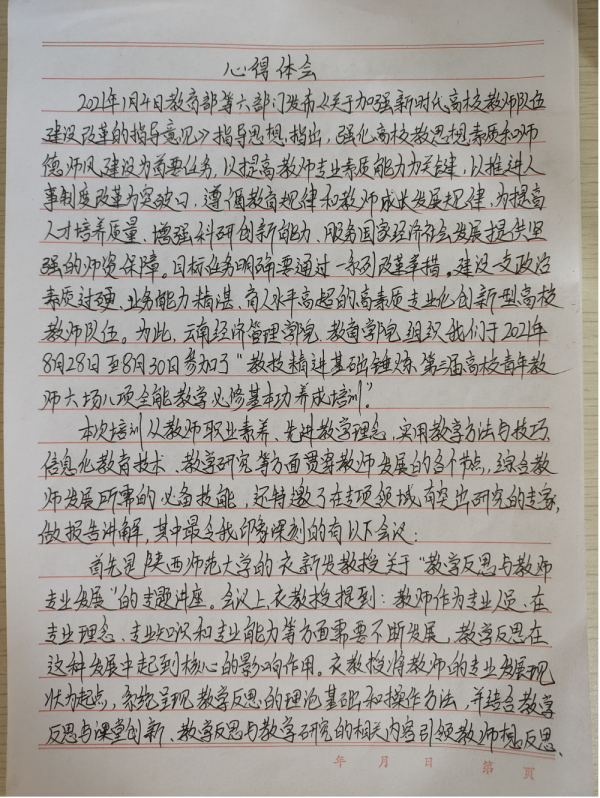 心得体会
2021年1月4日教育部等六部门发布《关于加强新时代高校教师队伍
建设改革的指导意见》指导思想指出，强化高校教思想素质和师
德师风建设为首要任务，以提高教师专业素质能力为关键，以推进人
事制度改革为突破口，遵循教育规律和教师成长发展规律，为提高
人才培养质量、增强科研创新能力、服务国家经济社会发展提供坚
强的师资保障。目标任务明确要通过一系列改革举措。建设一支政治
素质过硬、业务能力精湛、育人水平高超的高素质专业化创新型高校
教师队伍。为此，云南经济管理学院，教育学院组织我们于2021年
8月28日至8月30日参加了“教技精进基础锤炼 第三届高校青年教
师六场八项全能教学必修基本功养成培训”。
本次培训从教师职业素养、先进教学理念，实用教学方法与技巧，
信息化教育技术、教学研究等方面贯穿教师发展的各个节点，综合教
师发展所需的必备技能，还特邀了在专项领域有突出研究的专家，
做报告讲解，其中最令我印象深刻的有以下会议：
首先是陕西师范大学的衣新发教授关于“教学反思与教师
专业发展”的专题讲座。会议上，衣教授提到：教师作为专业人员、在
专业理念、专业知识和专业能力等方面需要不断发展，教学反思在
这种发展中起到核心的影响作用。衣教授将教师的专业发展现
状为起点，系统呈现教学反思的理论基础和操作方法，并结合教学
反思与课堂创新、教学反思与教学研究的相关内容引领教师想反思、
年 月 日 第 页